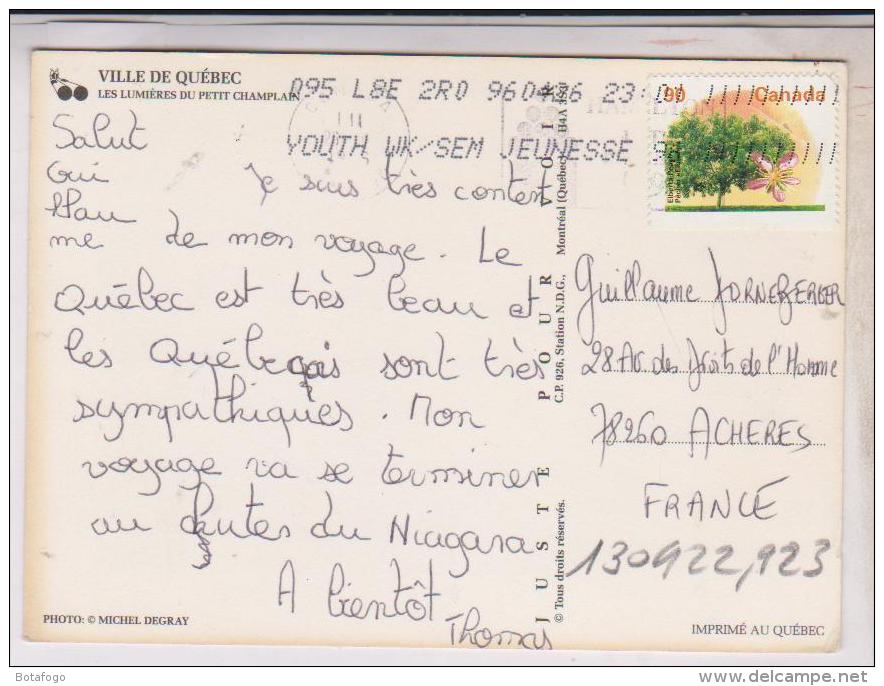 VILLE DE QUÉBEC
LES LUMIÈRES DU PETIT CHAMPLAIN
095 L8E 2R0 960426 23
YOUTH WK/SEM JEUNESSE
90 Canada
Salut
Gui
llau
me
Je suis très content
de mon voyage. Le
Québec est très beau et
les Québecois sont très
sympathiques. Mon
voyage va se terminer
au chutes du Niagara
A bientôt
Thomas
PHOTO: © MICHEL DEGRAY
JUSTE POUR VOIR
C.P. 926, Station N.D.G., Montréal (Québec) H4A
© Tous droits réservés.
Guillaume
28 Av des Droits de l'Homme
78260 ACHERES
FRANCE
130922,923
IMPRIMÉ AU QUÉBEC
Botafogo
www.delcampe.net